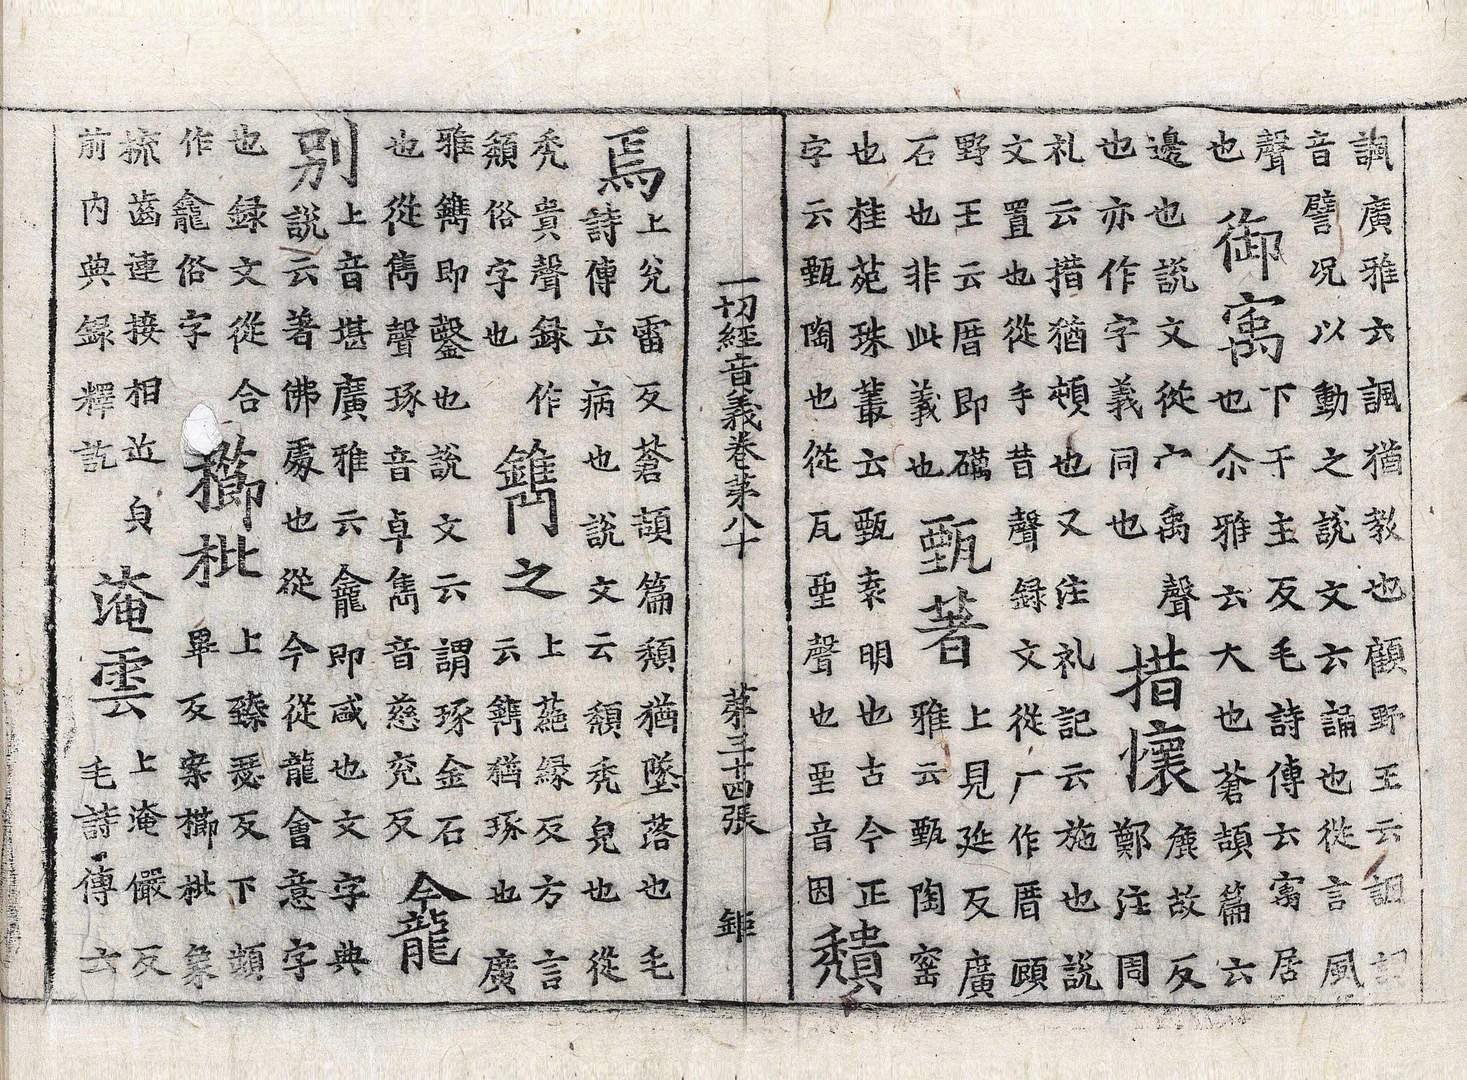 諷廣雅云諷猶教也顧野王云諷
音譬况以動之説文云誦也從言風
聲
也
御寓
下于主反毛詩傳云寓居
也尒雅云大也蒼頡篇云
邊也説文從宀禹聲
也亦作字義同也
措懷
麁故反
鄭注周
礼云措猶頓也又注礼記云施也説
文置也從手昔聲録文從厂作厝頋
野王云厝即礪
石也非此義也
甄著
上見延反廣
雅云甄陶窰
也桂苑珠叢云甄表明也古今正
字云甄陶也從瓦垔聲也垔音因
穨
一切經音義卷第八十 第三十四張 鉅
焉
上兊雷反蒼頡篇頹猶墜落也毛
詩傳云病也説文云頹秃皃也從
秃貴聲録作
頹俗字也
鐫之
上蕝緣反方言
云鐫猶琢也廣
雅鐫即鑿也説文云謂琢金石
也從雋聲琢音卓雋音慈兖反
龕
別
上音堪廣雅云龕即咸也文字典
説云著佛處也從今從龍會意字
也録文從合
作龕俗字
櫛枇
上臻瑟反下頻
畢反案櫛枇象
梳齒連接相近皃
前内典録釋訖
淹雲
上淹儼反
毛詩傳云